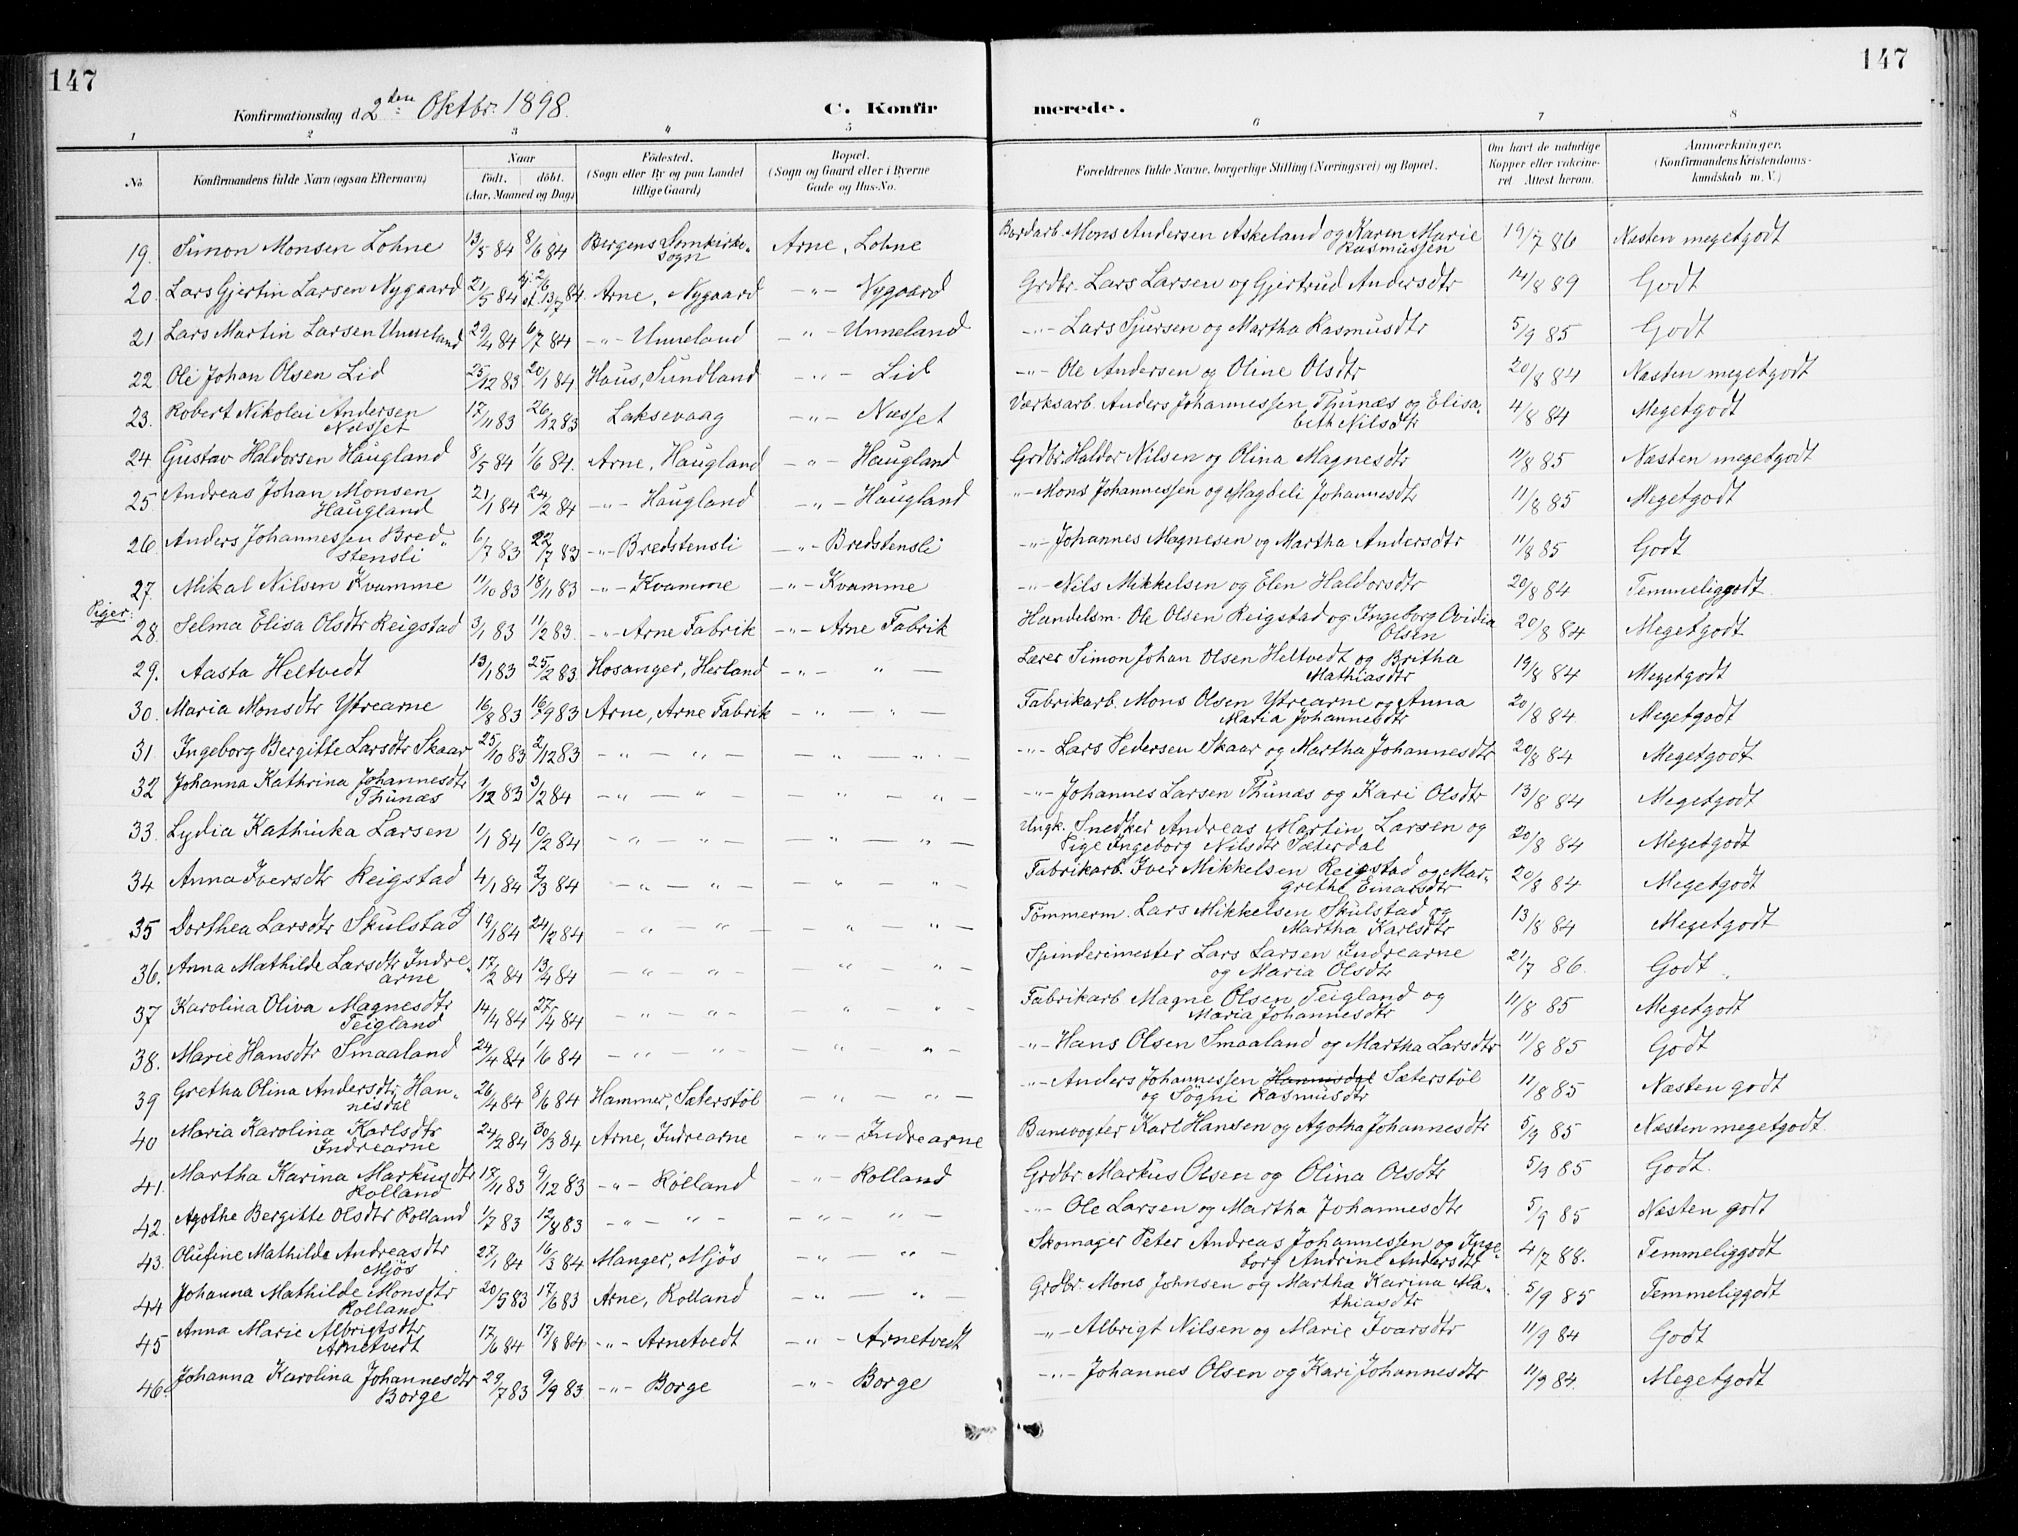 147
147
Konfirmationsdag d. 2den Oktbr. 1898.
C. Konfir
merede.
1 2 3 4 5 6 7 8
No
Konfirmandens fulde Navn (ogsaa Efternavn)
Naar
født. døbt.
(Aar, Maaned og Dag)
Fødested.
(Sogn eller By og paa Landet
tillige Gaard)
Bopæl.
(Sogn og Gaard eller i Byerne
Gade og Hus-No.
Forældrenes fulde Navne, borgerlige Stilling (Næringsvei) og Bopæl.
Om havt de naturlige
Kopper eller vakcine-
ret. Attest herom.
Anmærkninger.
(Konfirmandens Kristendoms-
kundskab m. V.)
19. Simon Monsen Lohne 13/5 84 8/6 84 Bergens Domkirke- Arne, Lohne Bordarb. Mons Andersen Askeland og Karen Marie 19/7 86 Næsten megetgodt
sogn Rasmussen
20. Lars Gjertin Larsen Nygaard 21/5 84 hj. 2/6 st. 13/7 84. Arne, Nygaard -"- Nygaard Grdbr. Lars Larsen og Gjertrud Andersdtr 14/8 89 Godt
21 Lars Martin Larsen Unneland 29/4 84 6/7 84 -"- Unneland -"- Unneland -"- Lars Sjursen og Martha Rasmusdtr 5/9 85 Godt
22 Ole Johan Olsen Lid 25/12 83 20/1 84 Haus, Sundland -"- Lid -"- Ole Andersen og Oline Olsdtr 20/8 84 Næsten megetgodt
23. Robert Nikolai Andersen 17/11 83 26/12 83 Laksevaag -"- Næsset Værksarb. Anders Johannessen Thunæs og Elisa- 4/8 84 Megetgodt
Næsset beth Nilsdtr
24 Gustav Haldorsen Haugland 8/5 84 1/6 84. Arne, Haugland -"- Haugland Grdbr. Haldor Nilsen og Olina Magnesdtr 11/8 85 Næsten megetgodt
25 Andreas Johan Monsen 21/1 84 24/2 84 -"- Haugland -"- Haugland -"- Mons Johannessen og Magdeli Johannesdtr 11/8 85 Megetgodt
Haugland
26 Anders Johannessen Bred- 6/7 83 22/7 83 -"- Bredstensli -"- Bredstensli -"- Johannes Magnesen og Martha Andersdtr 11/8 85 Godt
stensli
27. Mikal Nilsen Kvamme 11/10 83 18/11 83 -"- Kvamme -"- Kvamme -"- Nils Mikkelsen og Elen Haldorsdtr 20/8 84 Temmeliggodt.
Piger:
28. Selma Elisa Olsdtr Reigstad 3/1 83 11/2 83. -"- Arne Fabrik -"- Arne Fabrik Handelsm. Ole Olsen Reigstad og Ingeborg Ovidia 20/8 84 Megetgodt
Olsen
29. Aasta Heltvedt 13/1 83 25/2 83 Hosanger, Herland -"- " - Lærer Simon Johan Olsen Heltvedt og Britha 13/8 84 Megetgodt
Mathiasdtr
30. Maria Monsdtr Ytrearne 16/8 83 16/9 83 Arne, Arne Fabrik -"- "- Fabrikarb. Mons Olsen Ytrearne og Anna 20/8 84 Megetgodt
Maria Johannesdtr
31 Ingeborg Bergitte Larsdtr Skaar 25/10 83 2/12 83 -"- "- -"- "- -"- Lars Pedersen Skaar og Martha Johannesdtr 20/8 84 Megetgodt
32 Johanna Kathrina Johannesdtr 1/12 83 3/2 84 -"- "- -"- "- -"- Johannes Larsen Thunæs og Kari Olsdtr 13/8 84 Megetgodt
Thunæs
33. Lydia Kathinka Larsen 1/1 84 10/2 84 -"- "- -"- "- Ungk. Snedker Andreas Martin Larsen og 20/8 84 Megetgodt
Pige Ingeborg Nilsdtr Sæterdal
34 Anna Iversdtr Reigstad 4/1 84 2/3 84 -"- "- -"- "- Fabrikarb. Iver Mikkelsen Reigstad og Mar- 20/8 84 Megetgodt
grethe Einarsdtr
35 Dorthea Larsdtr Skulstad 19/1 84 24/2 84 -"- "- -"- "- Tømmerm. Lars Mikkelsen Skulstad og 13/8 84 Megetgodt
Martha Karlsdtr
36. Anna Mathilde Larsdtr Indre- 17/2 84 13/4 84 -"- "- -"- "- Spinderimester Lars Larsen Indrearne 21/7 86. Godt
arne og Maria Olsdtr
37 Karolina Oliva Magnesdtr 14/4 84 27/4 84 -"- "- -"- "- Fabrikarb Magne Olsen Teigland og 11/8 85 Megetgodt
Teigland Maria Johannesdtr
38. Marie Hansdtr Smaaland 24/4 84 1/6 84 -"- "- -"- "- -"- Hans Olsen Smaaland og Martha Larsdtr 11/8 85 Godt
39 Gretha Olina Andersdtr Han- 26/4 84 8/6 84 Hammer, Sæterstøl -"- "- -"- Anders Johannessen Hannisdal Sæterstøl 11/8 85 Næsten godt
nisdal og Søgni Rasmusdtr
40 Maria Karolina Karlsdtr 24/2 84 30/3 84 Arne, Indrearne -"- Indrearne Banevogter Karl Hansen og Agotha Johannesdtr 5/9 85 Næsten megetgodt.
Indrearne
41. Martha Karina Markusdtr 17/11 83 9/12 83 -"- Rolland -"- Rolland Grdbr. Markus Olsen og Olina Olsdtr 5/9 85 Godt.
Rolland
42. Agothe Bergitte Olsdtr Rolland 1/7 83 12/8 83 -"- "- -"- "- -"- Ole Larsen og Martha Johannesdtr 5/9 85 Næsten godt
43. Olufine Mathilde Andreasdtr 27/1 84 16/3 84 Manger, Mjøs -"- "- Skomager Peter Andreas Johannessen og Inge- 4/7 88. Temmeliggodt
Mjøs borg Andrine Andersdtr
44 Johanna Mathilde Monsdtr 20/5 83 17/6 83 Arne, Rolland -"- "- Grdbr. Mons Johnsen og Martha Karina Ma- 5/9 85 Temmeliggodt
Rolland thiasdtr
45 Anna Marie Albrigtsdtr 17/6 84 17/8 84 -"- Arnetvedt -"- Arnetvedt -"- Albrigt Nilsen og Marie Ivarsdtr 11/9 84 Godt
Arnetvedt
46. Johanna Karolina Johannesdtr 29/7 83 9/9 83 -"- Borge -"- Borge -"- Johannes Olsen og Kari Johannesdtr 11/9 84. Megetgodt
Borge